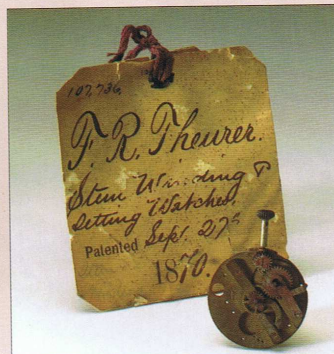 107,736.
F. R. Theurer.
Stem Winding &
Setting Watches.
Patented Sep. 27th
1870.